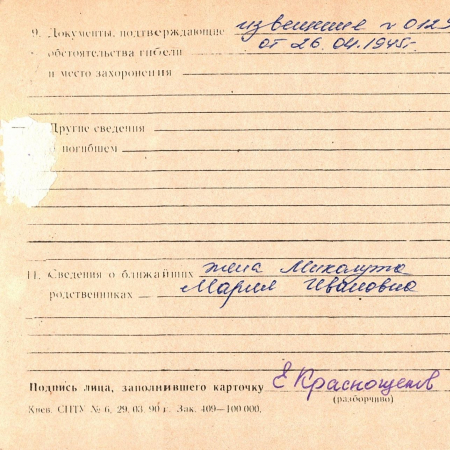 9. Документы, подтверждающие извещение № 0129
обстоятельства гибели от 26.04.1945г.
и место захоронения
Другие сведения
о погибшем
11. Сведения о ближайших жена Михалута
родственниках Мария Ивановна
Подпись лица, заполнившего карточку Е Краснощеков
(разборчиво)
Киев. СПТУ № 6, 29. 03. 90 г. Зак. 409—100 000.